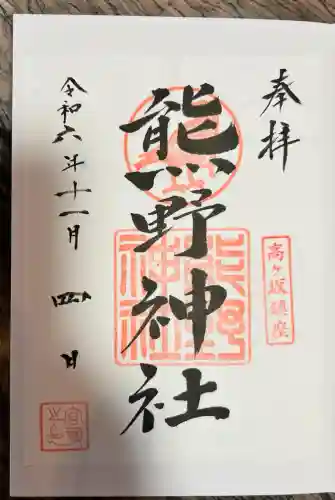 奉拝
高ヶ坂鎮座
熊野神社
熊野神社
令和六年十一月四日
宮司之印